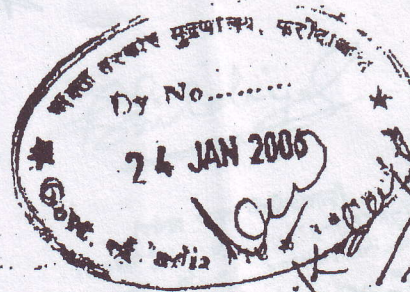 भारत सरकार मुद्रणालय, फरीदाबाद
Dy No.........
24 JAN 2006
Govt. of India